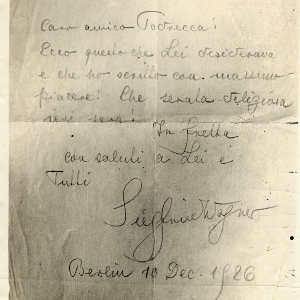 Caro amico Podrecca!
Ecco questo che Lei desiderava
e che ho scritto con massimo
piacere! Che serata deliziosa
ieri sera! In fretta
con saluti a Lei e
Tutti
Siegfried Wagner
Berlin 10 Dec. 1926